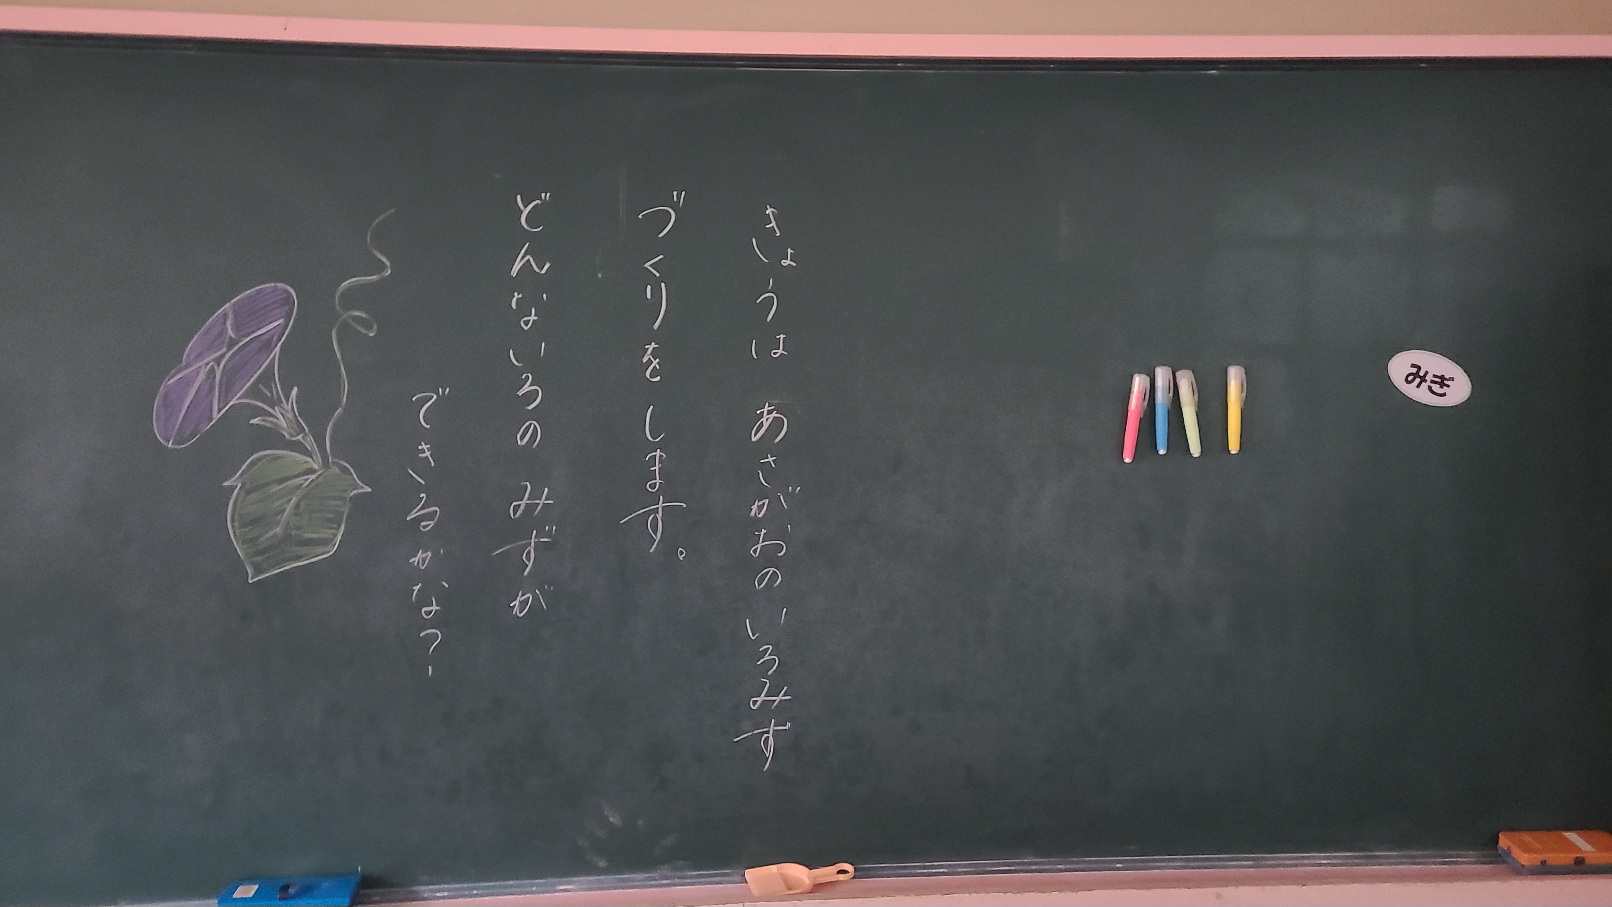 みぎ
きょうは あさがおのいろみず
づくりを します。
どんないろの みずが
できるかな?